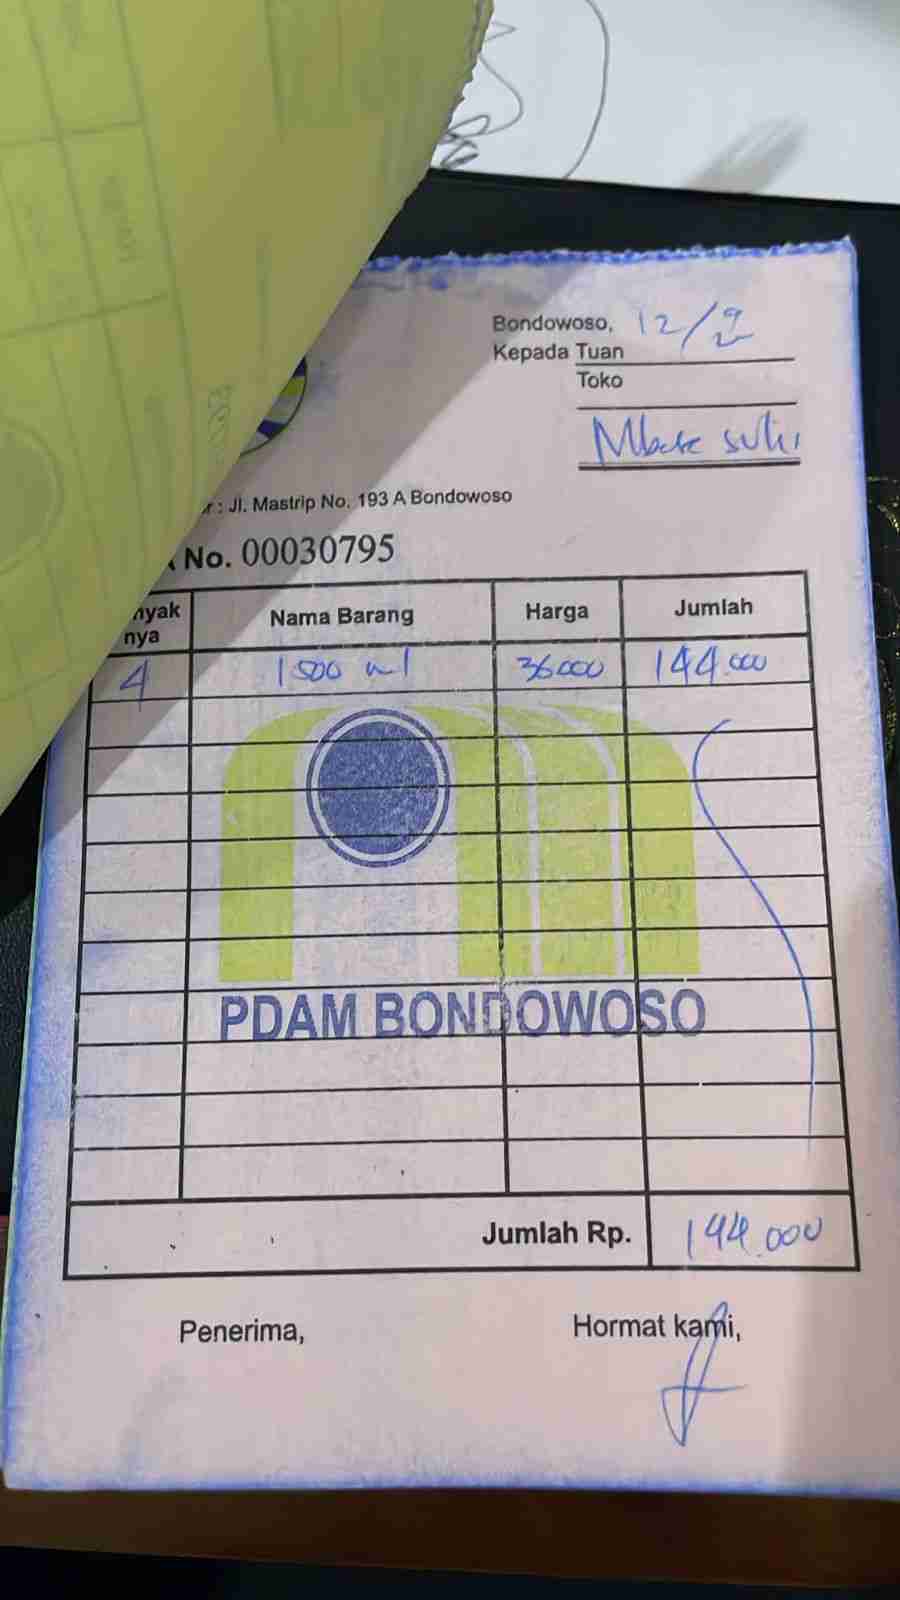 Bondowoso, 12/9
Kepada Tuan
Toko
Mbak
r : Jl. Mastrip No. 193 A Bondowoso
No. 00030795
nyak nya Nama Barang Harga Jumlah
4 1500 ml 36000 144.000
PDAM BONDOWOSO
Jumlah Rp. 144.000
Penerima, Hormat kami,